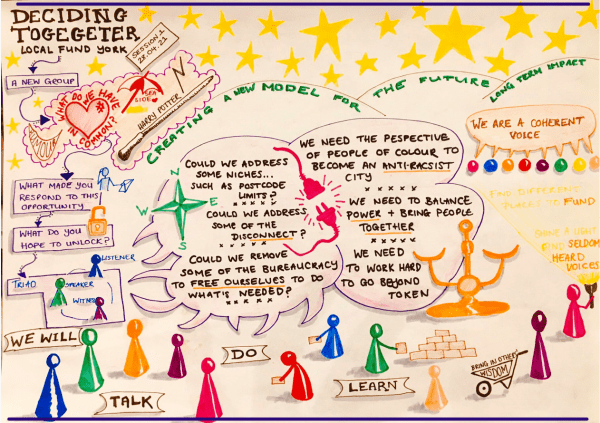 DECIDING
TOGEGETER
LOCAL FUND YORK
SESSION 1
28.04.21
A NEW GROUP
WHAT DO WE HAVE
IN COMMON?
SEA
SIDE
N
HARRY POTTER
CREATING A NEW MODEL FOR THE FUTURE
LONG TERM IMPACT
WHAT MADE YOU
RESPOND TO THIS
OPPORTUNITY
WHAT DO YOU
HOPE TO UNLOCK?
TRIAD
LISTENER
SPEAKER
WITNESS
N
W
E
S
COULD WE ADDRESS
SOME NICHES...
SUCH AS POSTCODE
LIMITS?
COULD WE ADDRESS
SOME OF THE
DISCONNECT?
COULD WE REMOVE
SOME OF THE BUREAUCRACY
TO FREE OURSELVES TO DO
WHAT'S NEEDED?
WE NEED THE PESPECTIVE
OF PEOPLE OF COLOUR TO
BECOME AN ANTI-RACSIST
CITY
WE NEED TO BALANCE
POWER + BRING PEOPLE
TOGETHER
WE NEED
TO WORK HARD
TO GO BEYOND
TOKEN
WE ARE A COHERENT
VOICE
FIND DIFFERENT
PLACES TO FUND
SHINE A LIGHT
FIND SELDOM
HEARD
VOICES
WE WILL
TALK
DO
LEARN
BRING IN OTHERS
WISDOM